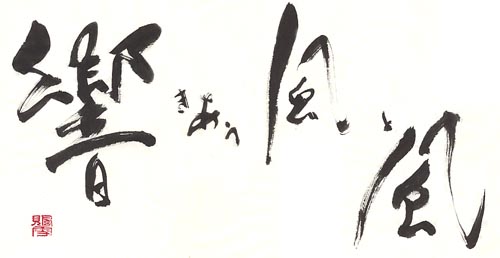 響きあう風と風